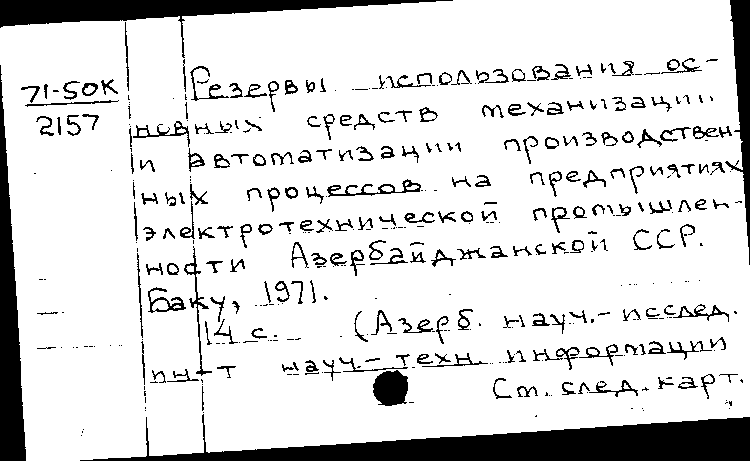 71-50К
2157
Резервы использования ос-
новных средств механизации
и автоматизации производствен-
ных процессов на предприятиях
электротехнической промышлен-
ности Азербайджанской ССР.
Баку, 1971.
14 с. (Азерб. науч.-исслед.
ин-т науч.-техн. информации
См. след. карт.